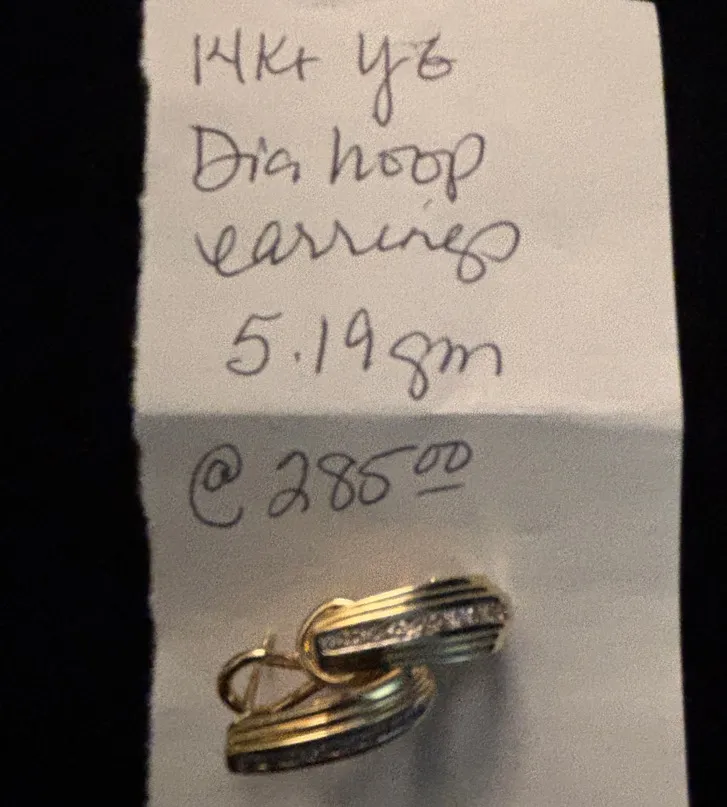 14Kt YG
Dia hoop
earrings
5.19gm
@ 285.00